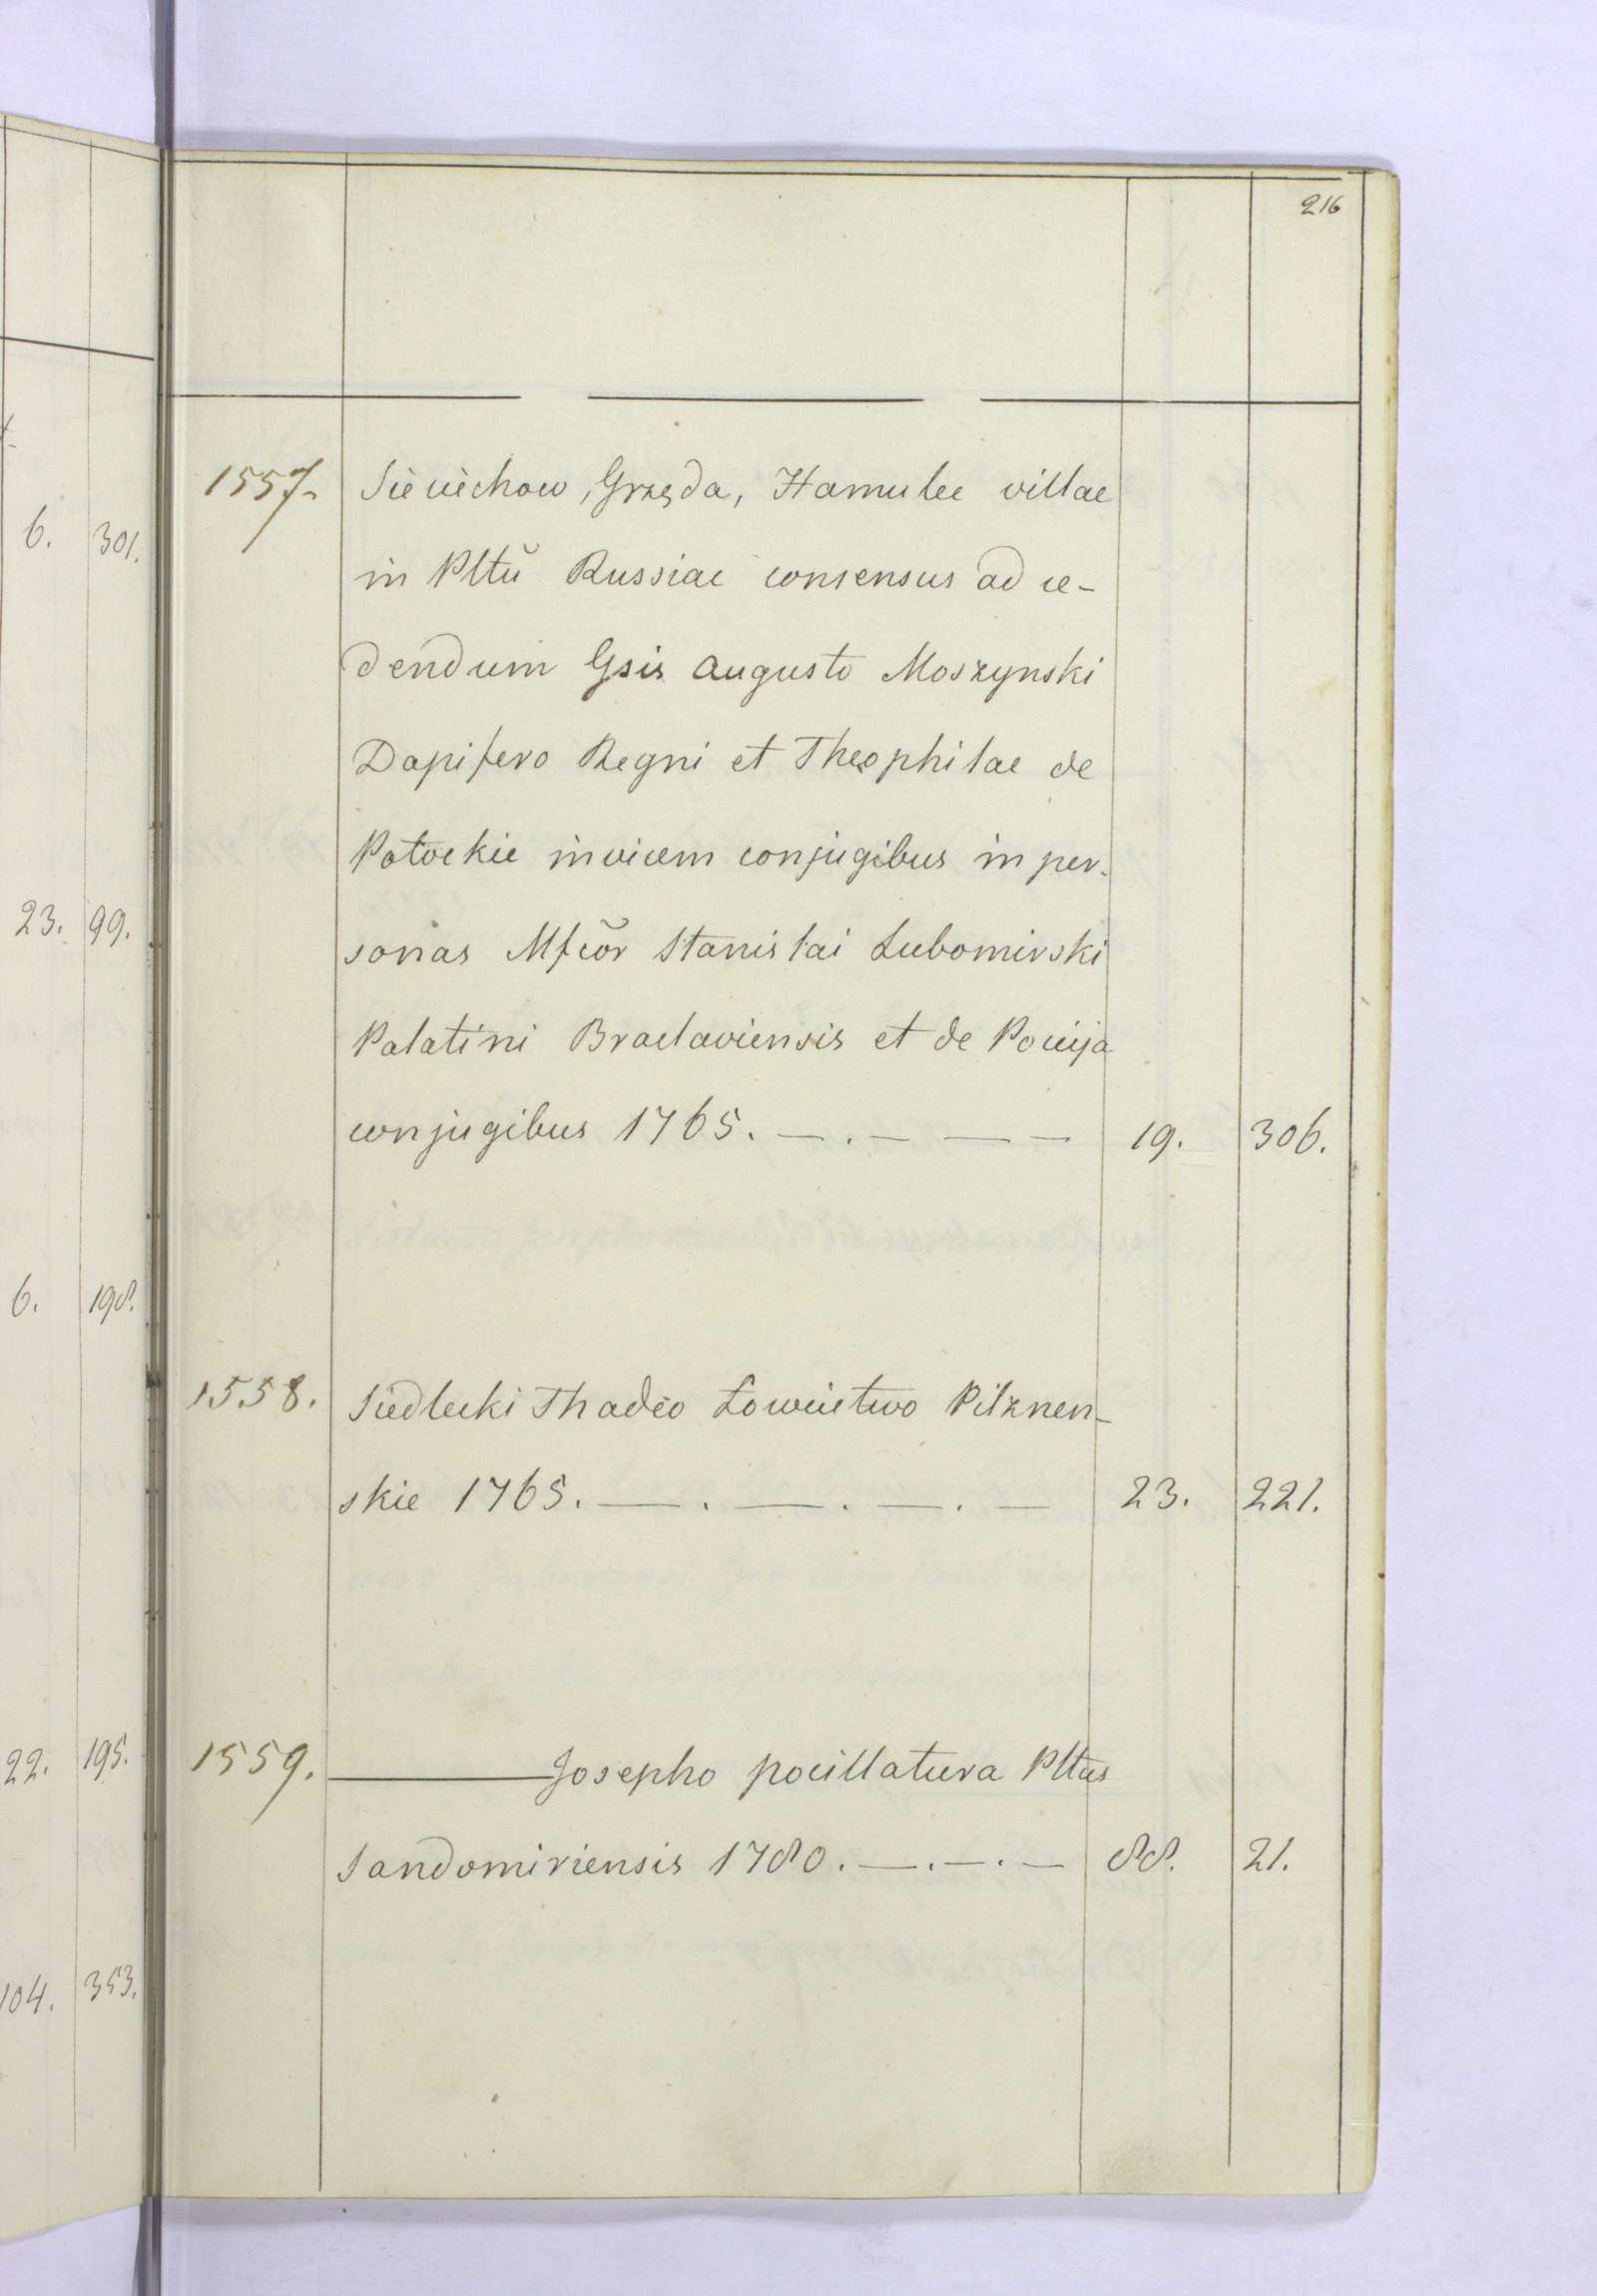 216
6. 301.
23. 99.
6. 198.
22. 195.
104. 353.
1557. Sieciechow, Grzęda, Hamulec villae
in Pltŭ Russiae consensus ad ce-
dendum Gsis Augusto Moszynski
Dapifero Regni et Theophilae de
Potockie invicem conjugibus in per-
sonas Mfcõr Stanislai Lubomirski
Palatini Braclaviensis et de Pociija
conjugibus 1765. —.— — — 19. 306.
1558. Siedlecki Thadeo Łowciistwo Pilznen-
skie 1765. — . — . — . — 23. 221.
1559. ——— Josepho pocillatura Pltus
Sandomiriensis 1780. —.—.— 88. 21.